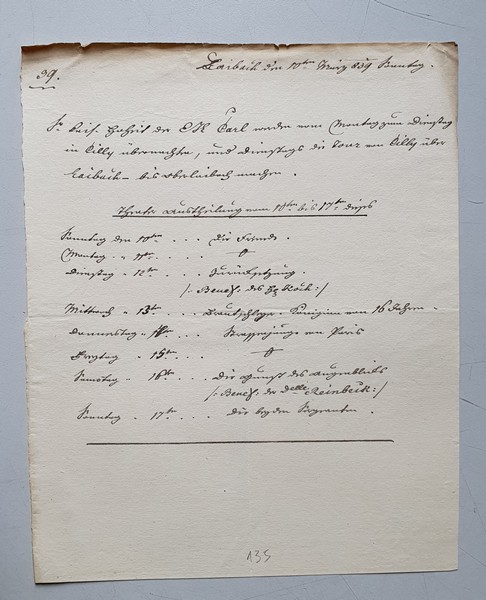 39.
Laibach den 10ten März 839 Sonntag.
Sr kais. Hoheit der EH Carl werden vom Montag zum Dienstag
in Cilly übernachten, und Dienstags die Tour von Cilly über
Laibach – bis Oberlaibach machen.
Theater Austheilung vom 10ten bis 17ten dieses
Sonntag den 10ten . . . Die Fremde.
Montag " 11ten . . .
Dienstag " 12ten . . . Zurücksetzung.
/: Benef. des H Koch :/
Mittwoch " 13ten . . . Königin von 16 Jahren –
Donnerstag " 14ten . . . Strassenjunge von Paris
Freytag " 15ten . . .
Samstag " 16ten . . . Die Gunst des Augenblicks
/: Benef. der Dlle Reinbeck :/
Sonntag " 17ten . . . Die beyden Sergeanten.
135